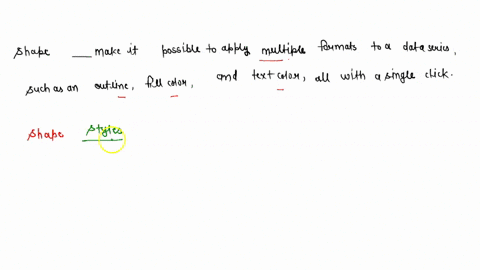 shape ___ make it possible to apply multiple formats to a data series,
such as an outline, fill color, and text color, all with a single click.
shape styles